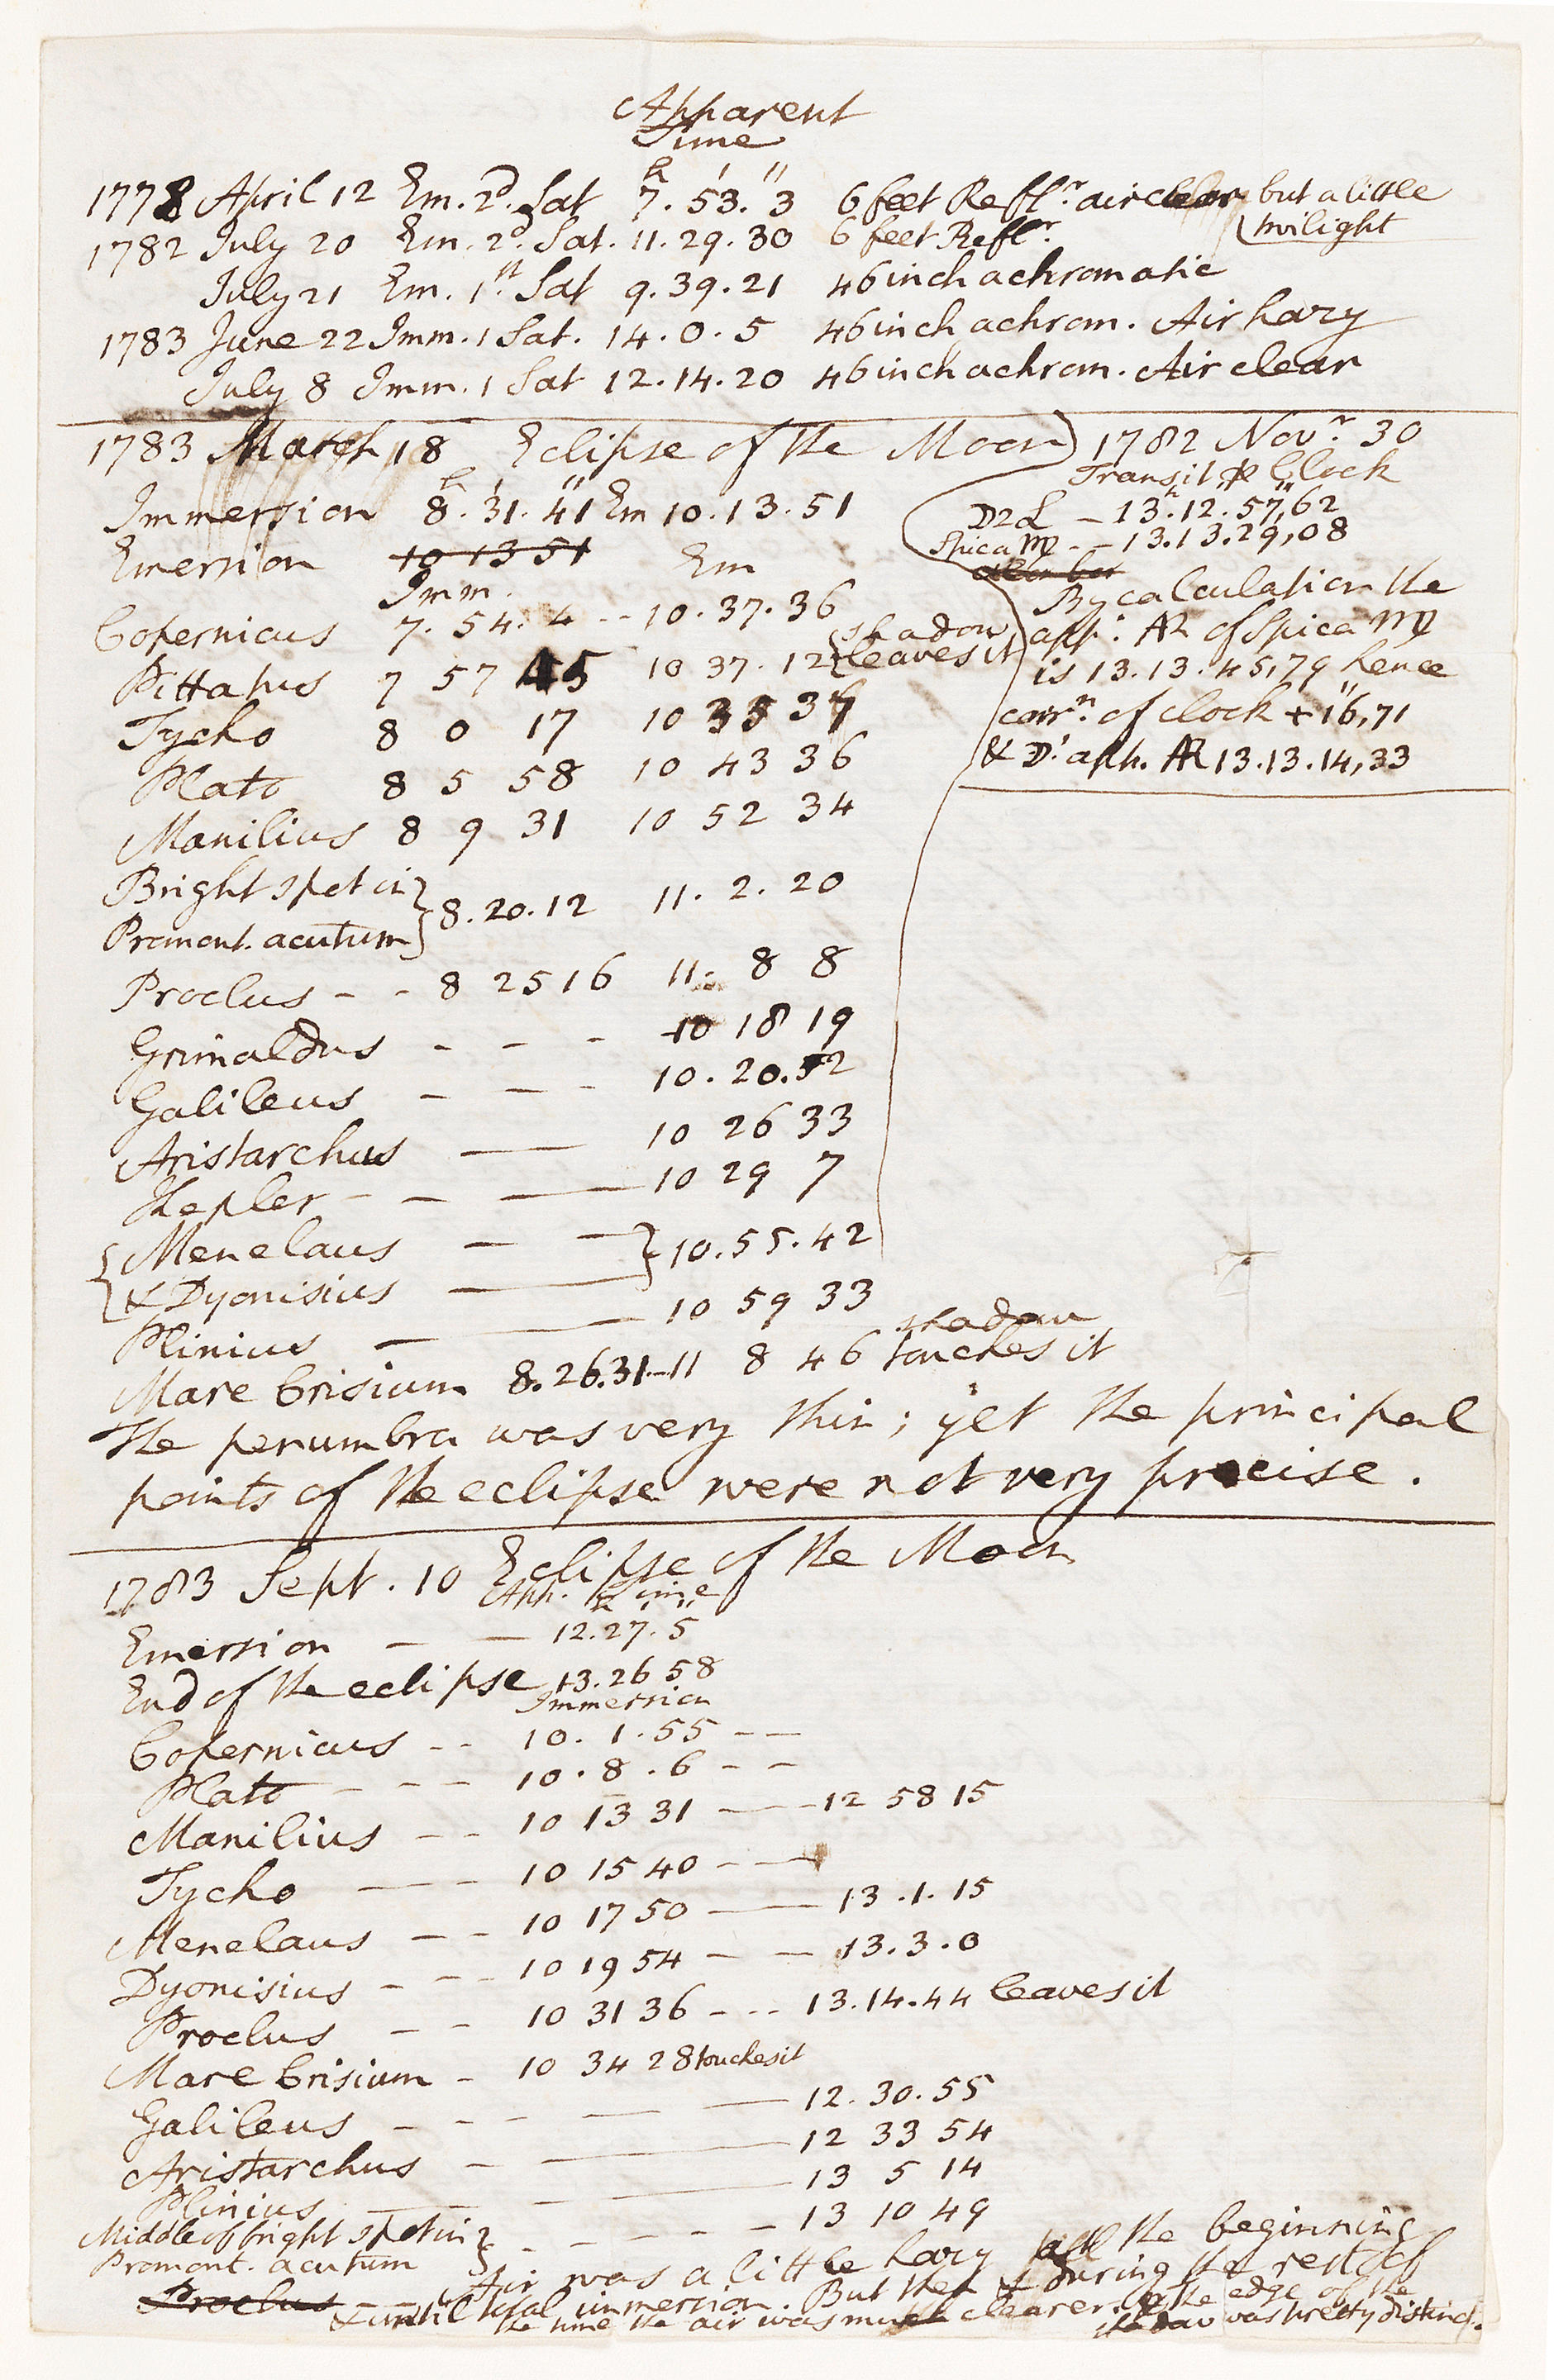 Apparent
Time
h ' "
1778 April 12 Em. 2d. Sat 7. 53. 3 6 feet Reflr. air clear but a little
twilight
1782 July 20 Em. 2d. Sat. 11. 29. 30 6 feet Reflr.
July 21 Em. 1st. Sat 9. 39. 21 46 inch achromatic
1783 June 22 Imm. 1 Sat. 14. 0. 5 46 inch achrom. Air hazy
July 8 Imm. 1 Sat 12. 14. 20 46 inch achrom. Air clear
1783 March 18 Eclipse of the Moon
h ' "
Immersion 8. 31. 41 Em 10. 13. 51
Emersion 10 13 51 Em
Imm.
Copernicus 7. 54. 4 -- 10. 37. 36
Pittatus 7 57 45 10 37. 12 {shadow
leaves it
Tycho 8 0 17 10 35 37
Plato 8 5 58 10 43 36
Manilius 8 9 31 10 52 34
Bright spot in }
Promont. acutum } 8. 20. 12 11. 2. 20
Proclus - - 8 25 16 11. 8 8
Grimaldus - - - 10 18 19
Galileus - - - 10. 20. 52
Aristarchus — — 10 26 33
Kepler - - — — 10 29 7
{ Menelaus — — } 10. 55. 42
& Dyonisius —
Plinius — — 10 59 33
Mare Crisium 8. 26. 31 -- 11 8 46 shadow
touches it
The penumbra was very thin; yet the principal
points of the eclipse were not very precise.
1782 Novr. 30
Transit p Clock
h " "
☽ 2 L — 13. 12. 57,62
Spica ♍ - - 13. 13. 29,08
By calculation the
appt. AR of Spica ♍
is 13. 13. 45,79 hence
corrn. of clock + 16",71
& ☽'s app. AR 13. 13. 14,33
1783 Sept. 10 Eclipse of the Moon
App. Time
h ' "
Emersion — — 12. 27. 5
End of the eclipse 13. 26 58
Immersion
Copernicus - - 10. 1. 55 - —
Plato - - - 10. 8. 6 - -
Manilius - - 10 13 31 — — 12 58 15
Tycho — - 10 15 40 - - —
Menelaus — - 10 17 50 — — 13. 1. 15
Dyonisius - - - 10 19 54 - — 13. 3. 0
Proclus — - 10 31 36 - - - 13. 14. 44 leaves it
Mare Crisium - 10 34 28 touches it
Galileus - - - — — 12. 30. 55
Aristarchus - — — 12 33 54
Plinius — - — 13 5 14
Middle of bright spot in }
Promont. acutum } - - - - 13 10 49
Proclus
Air was a little hazy all the beginning
& until total immersion. But then & during the rest of
the time the air was much clearer. & the edge of the
shadow was pretty distinct.